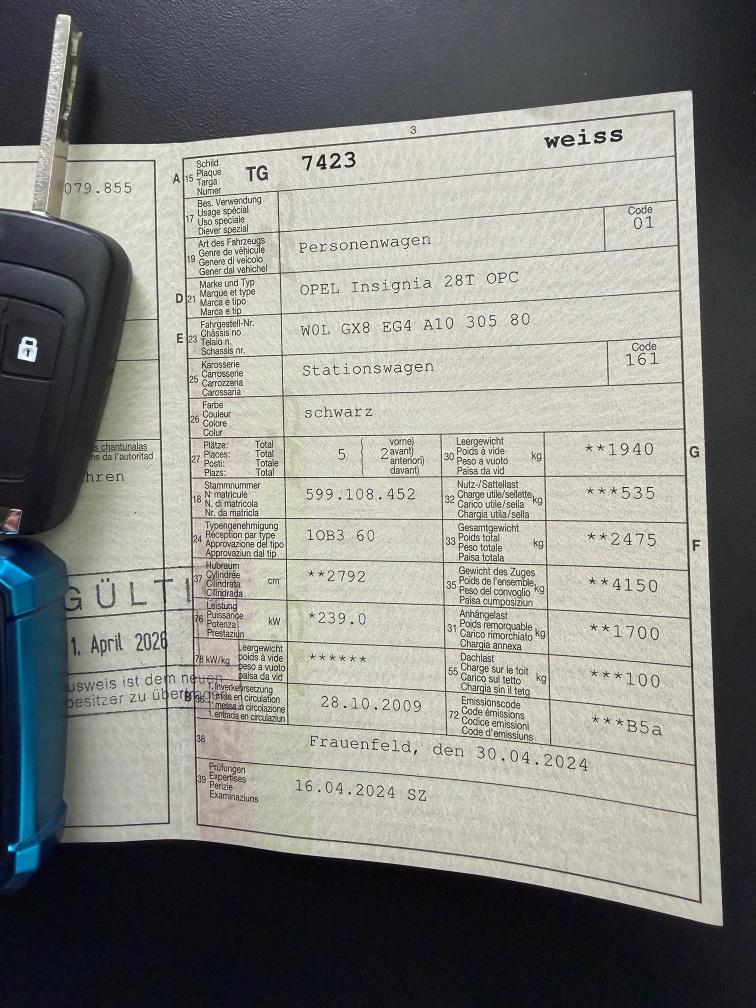 3
079.855
A 15 Schild
Plaque
Targa
Numer
TG 7423 weiss
17 Bes. Verwendung
Usage spécial
Uso speciale
Diever spezial
19 Art des Fahrzeugs
Genre de véhicule
Genere di veicolo
Gener dal vehichel
Personenwagen
Code
01
D 21 Marke und Typ
Marque et type
Marca e tipo
Marca e tip
OPEL Insignia 28T OPC
E 23 Fahrgestell-Nr.
Châssis no
Telaio n.
Schassis nr.
W0L GX8 EG4 A10 305 80
25 Karosserie
Carrosserie
Carrozzeria
Carossaria
Stationswagen
Code
161
26 Farbe
Couleur
Colore
Colur
schwarz
27 Plätze: Total
Places: Total
Posti: Totale
Plazs: Total
5 2 vorne)
avant)
anteriori)
davant)
30 Leergewicht
Poids à vide
Peso a vuoto
Paisa da vid
kg
**1940
G
18 Stammnummer
N° matricule
N. di matricola
Nr. da matricla
599.108.452
32 Nutz-/Sattellast
Charge utile/sellette
Carico utile/sella
Chargia utila/sella
kg
***535
24 Typengenehmigung
Réception par type
Approvazione del tipo
Approvaziun dal tip
1OB3 60
33 Gesamtgewicht
Poids total
Peso totale
Paisa totala
kg
**2475
F
37 Hubraum
Cylindrée
Cilindrata
Cilindrada
cm³
**2792
35 Gewicht des Zuges
Poids de l'ensemble
Peso del convoglio
Paisa cumposiziun
kg
**4150
76 Leistung
Puissance
Potenza
Prestaziun
kW
*239.0
31 Anhängelast
Poids remorquable
Carico rimorchiato
Chargia annexa
kg
**1700
78 kW/kg Leergewicht
poids à vide
peso a vuoto
paisa da vid
******
55 Dachlast
Charge sur le toit
Carico sul tetto
Chargia sin il tetg
kg
***100
B 36 1. Inverkehrsetzung
1re mise en circulation
1a messa in circolazione
1. entrada en circulaziun
28.10.2009
72 Emissionscode
Code émissions
Codice emissioni
Code d'emissiuns
***B5a
38 Frauenfeld, den 30.04.2024
39 Prüfungen
Expertises
Perizie
Examinaziuns
16.04.2024 SZ
s chantunalas
ns da l'autoritad
hren
GÜLTI
1. April 2026
usweis ist dem neuen
besitzer zu übertragen